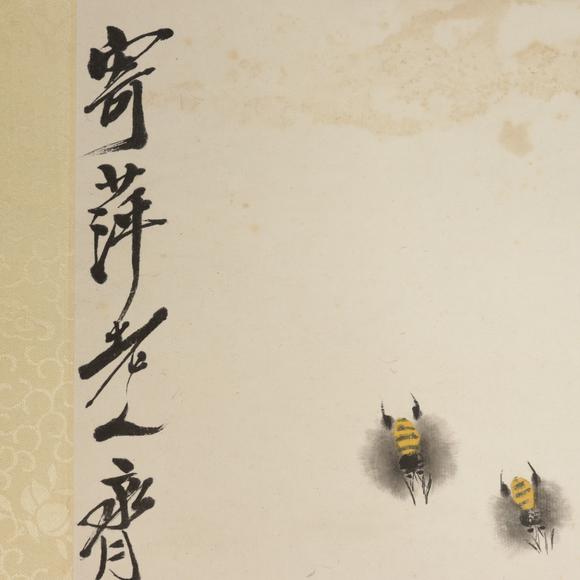 寄萍老人齊